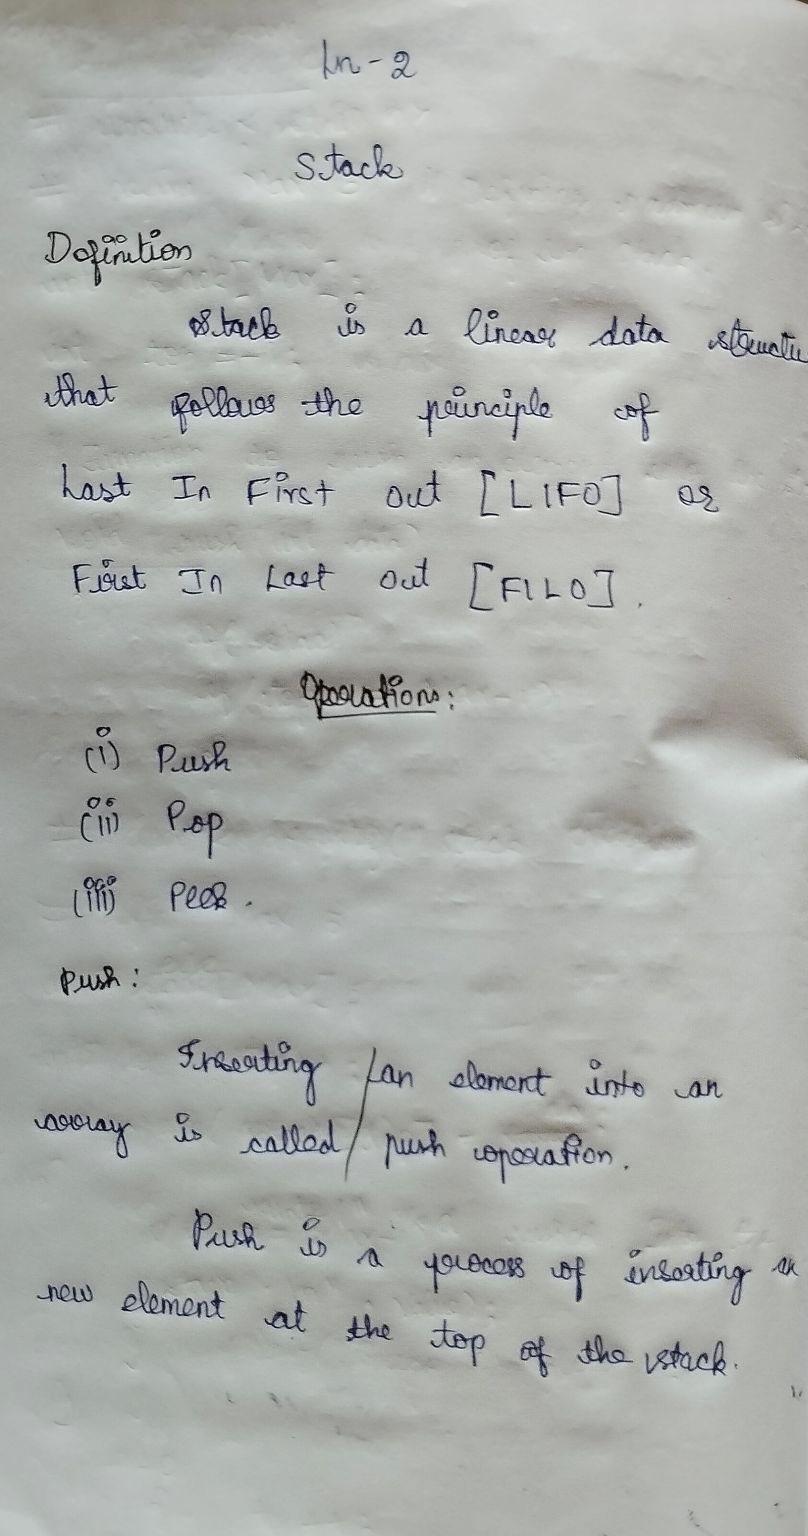 Ln-2
Stack
Definition
Stack is a linear data structu
that follows the principle of
Last In First out [LIFO] or
First In Last out [FILO].
Operations:
(i) Push
(ii) Pop
(iii) Peek.
Push:
Inserting / an element into an
array is called / push operation.
Push is a process of inserting a
new element at the top of the stack.